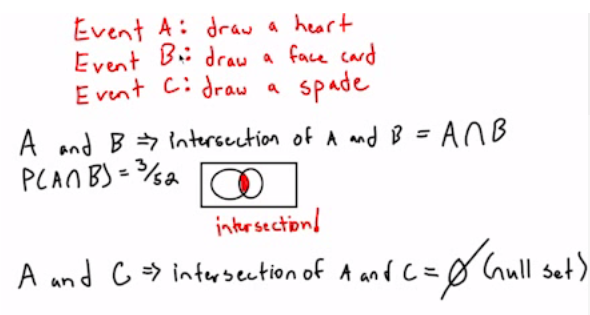 Event A: draw a heart
Event B: draw a face card
Event C: draw a spade
A and B ⇒ intersection of A and B = A∩B
P(A∩B) = 3/52
intersection!
A and C ⇒ intersection of A and C = ∅ (null set)